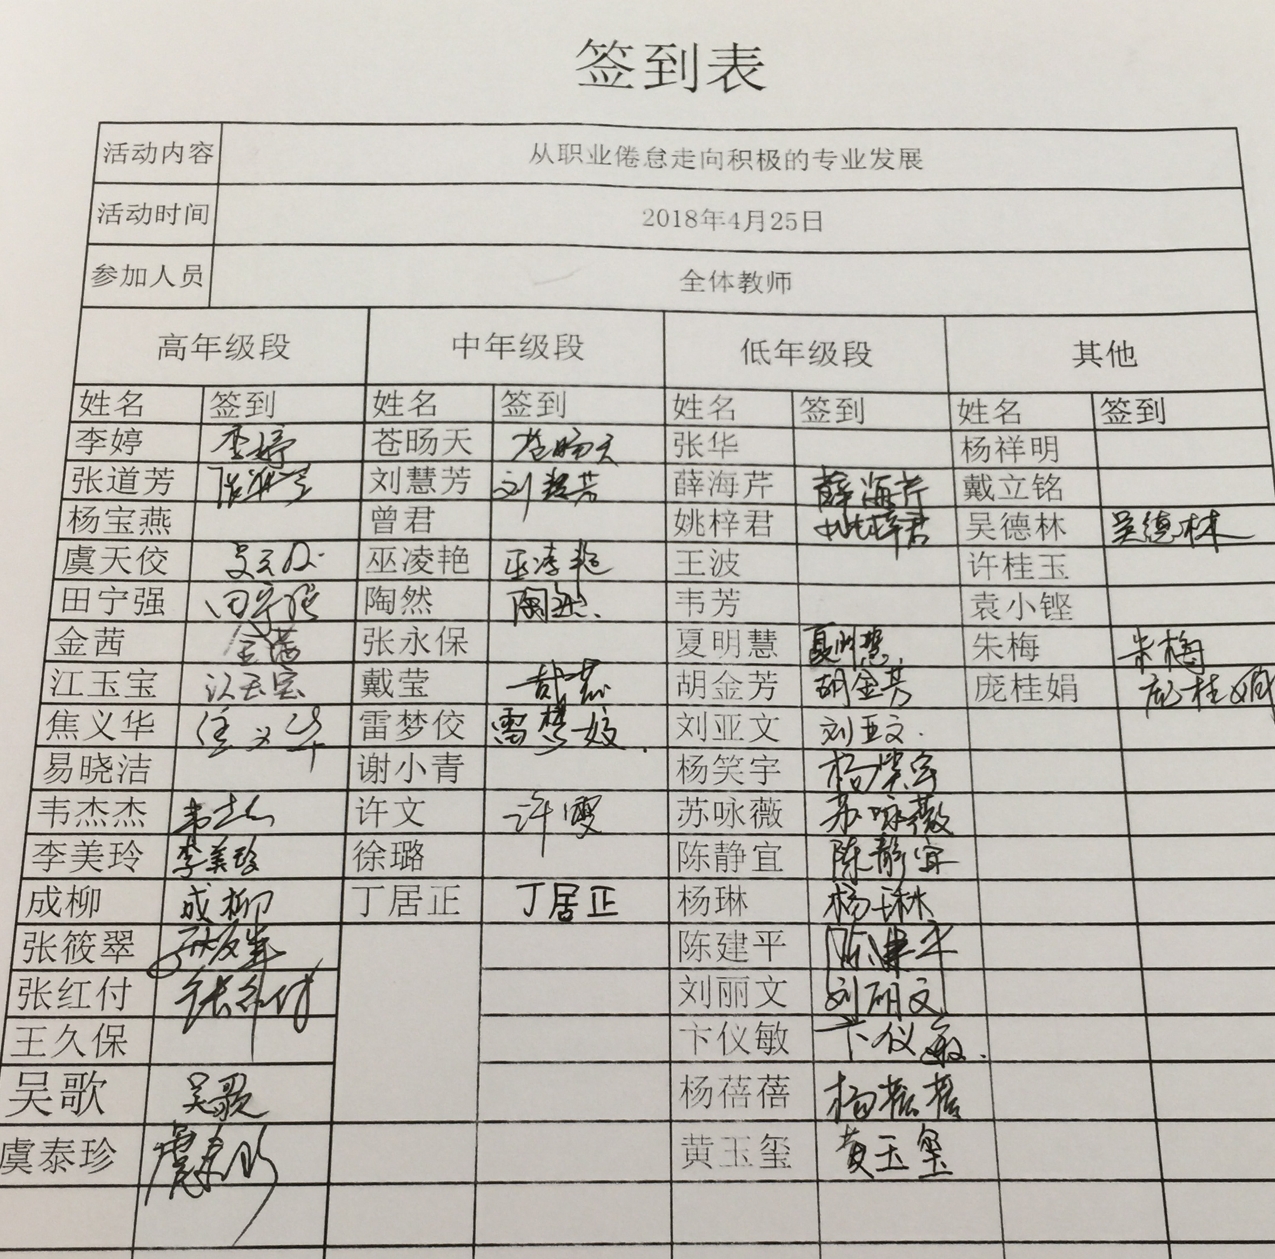 签到表
活动内容 从职业倦怠走向积极的专业发展
活动时间 2018年4月25日
参加人员 全体教师
高年级段 中年级段 低年级段 其他
姓名 签到 姓名 签到 姓名 签到 姓名 签到
李婷 李婷 苍旸天 苍旸天 张华 杨祥明
张道芳 张道芳 刘慧芳 刘慧芳 薛海芹 薛海芹 戴立铭
杨宝燕 曾君 姚梓君 姚梓君 吴德林 吴德林
虞天佼 巫凌艳 巫凌艳 王波 许桂玉
田宁强 田宁强 陶然 陶然 韦芳 袁小铿
金茜 金茜 张永保 夏明慧 夏明慧 朱梅 朱梅
江玉宝 江玉宝 戴莹 胡金芳 胡金芳 庞桂娟 庞桂娟
焦义华 焦义华 雷梦佼 雷梦姣 刘亚文 刘亚文
易晓洁 谢小青 杨笑宇 杨笑宇
韦杰杰 韦杰杰 许文 许雯 苏咏薇 苏咏薇
李美玲 李美玲 徐璐 陈静宜 陈静宜
成柳 成柳 丁居正 丁居正 杨琳 杨琳
张筱翠 陈建平 陈建平
张红付 张红付 刘丽文 刘丽文
王久保 卞仪敏 卞仪敏
吴歌 吴歌 杨蓓蓓 杨蓓蓓
虞泰珍 虞泰珍 黄玉玺 黄玉玺